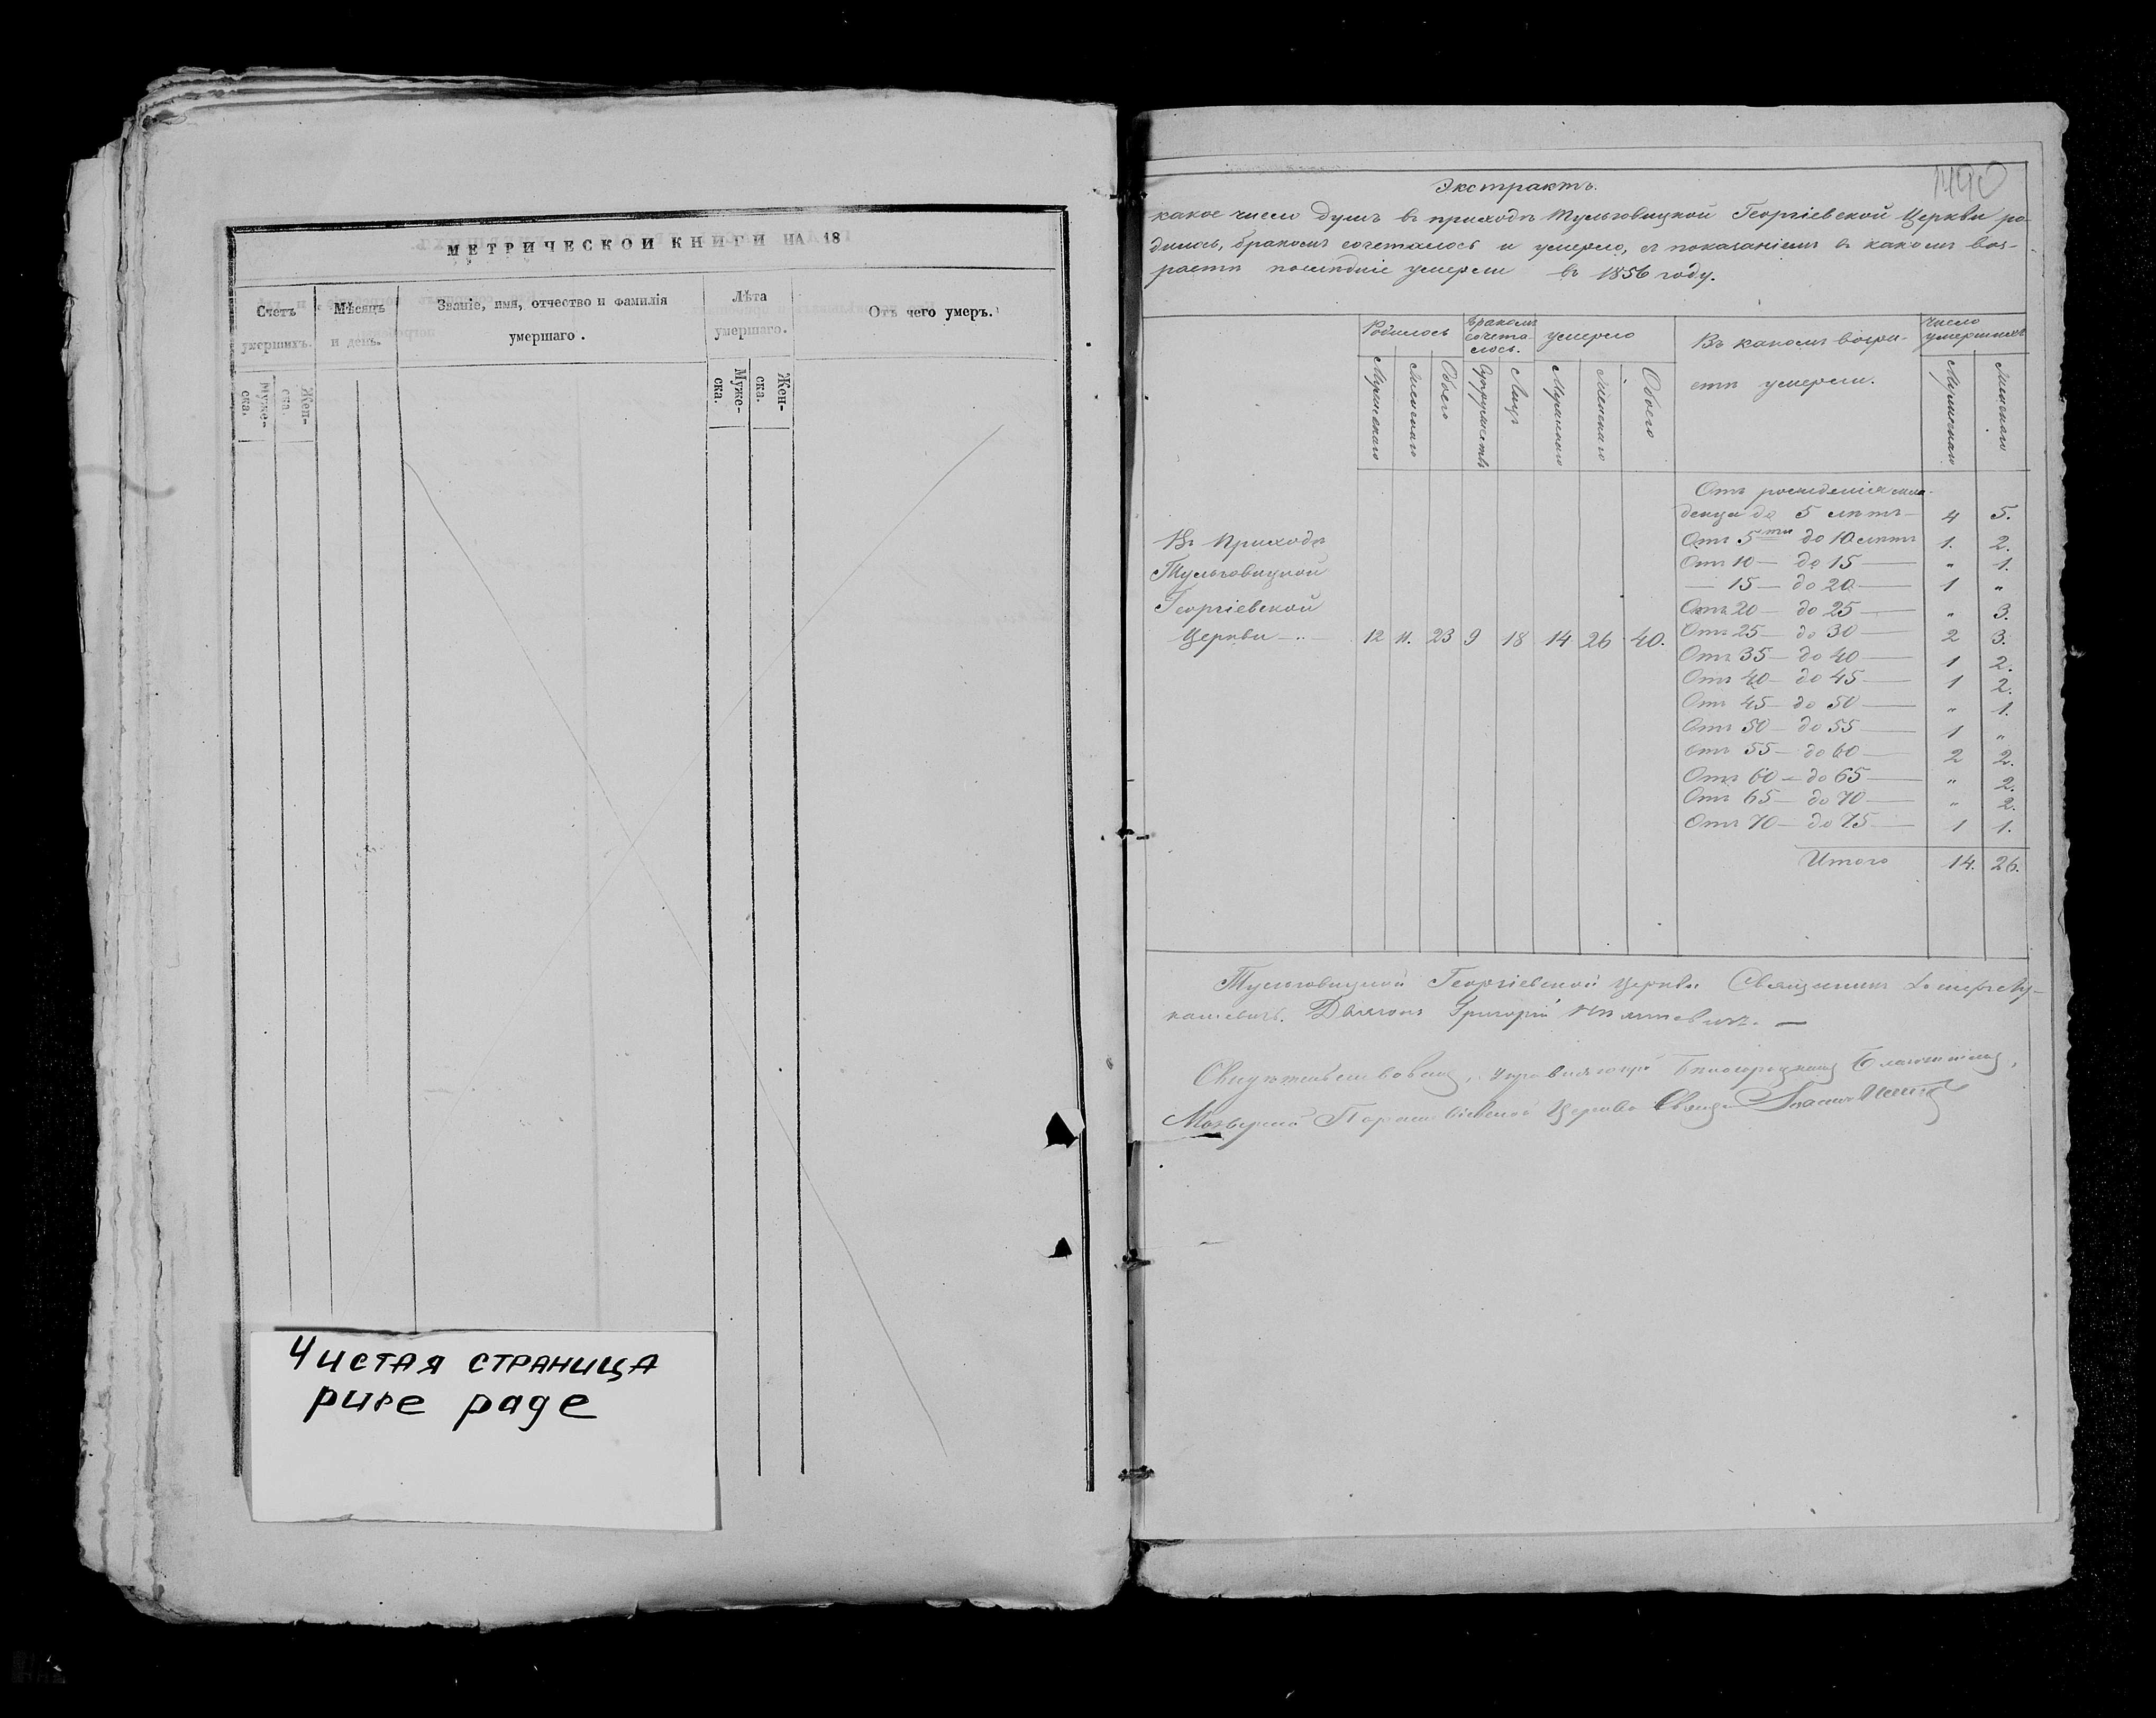 МЕТРИЧЕСКОЙ КНИГИ НА 18
Счетъ умершихъ.
Мѣсяцъ и день.
Званіе, имя, отчество и фамилія умершаго.
Лѣта умершаго.
Отъ чего умеръ.
Муже-ска.
Жен-ска.
Муже-ска.
Жен-ска.
Чистая страница
pure page
Экстрактъ.
какое число душъ въ приходѣ Тульговицкой Георгіевской Церкви ро-
дилось, бракомъ сочеталось и умерло, съ показаніемъ въ какомъ воз-
растѣ послѣдніе умерли въ 1856 году.
Родилось
Бракомъ сочета-лось.
умерло
Въ какомъ возра-
стѣ умерли.
Число умершихъ
Мужескаго
Женскаго
Обоего
Супружествъ
Лицъ
Мужескаго
Женскаго
Обоего
Мужескаго
Женскаго
Отъ рожденія мла-
денца до 5 лѣтъ 4 5.
Отъ 5ти до 10 лѣтъ 1. 2.
Отъ 10 — до 15 — „ 1.
— 15 — до 20 — 1 „
Отъ 20 — до 25 — „ 3.
Отъ 25 — до 30 — 2 3.
Отъ 35 — до 40 — 1 2.
Отъ 40 — до 45 — 1 2.
Отъ 45 — до 50 — „ 1.
Отъ 50 — до 55 — 1 „
Отъ 55 — до 60 — 2 2.
Отъ 60 — до 65 — „ 2.
Отъ 65 — до 70 — „ 2.
Отъ 70 — до 75 — 1 1.
Итого 14. 26.
Въ Приходѣ
Тульговицкой
Георгіевской
Церкви — 12 11. 23 9 18 14 26 40.
Тульговицкой Георгіевской Церкви Священникъ
Григорій
Церкви